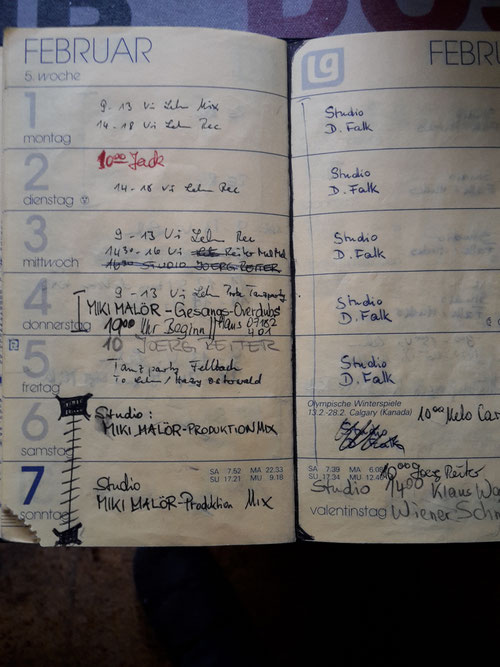 FEBRUAR
5. woche
1
montag
9 - 13 Vi Lehn Mix
14 - 18 Vi Lehn Rec
2
dienstag
10⁰⁰ Jack
14 - 18 Vi Lehn Rec
3
mittwoch
9 - 13 Vi Lehn Rec
14³⁰ - 16 Vi Reiter
16³⁰ STUDIO JOERG REITER
4
donnerstag
9 - 13 Vi Lehn Tanzparty
MIKI MALÖR - Gesangs-Overdubs
19⁰⁰ Uhr Beginn // Haus 07182
4201
5
freitag
10 JOERG REITER
Tanzparty Fellbach
To Lehn / Osterwald
6
samstag
Studio:
MIKI MALÖR-PRODUKTION MIX
7
sonntag
SA 7.52 MA 22.33
SU 17.21 MU 9.18
Studio
MIKI MALÖR-Produktion Mix
lg
FEBRU
Studio
D. Falk
Studio
D. Falk
Studio
D. Falk
Studio
D. Falk
Studio
D. Falk
Olympische Winterspiele
13.2.-28.2. Calgary (Kanada)
10⁰⁰ Melo Car
Studio
D. Falk
SA 7.39 MA 6.08
SU 17.34 MU 12.46
10⁰⁰ Joerg Reiter
Studio 14⁰⁰ Klaus Wa
valentinstag Wiener Schn